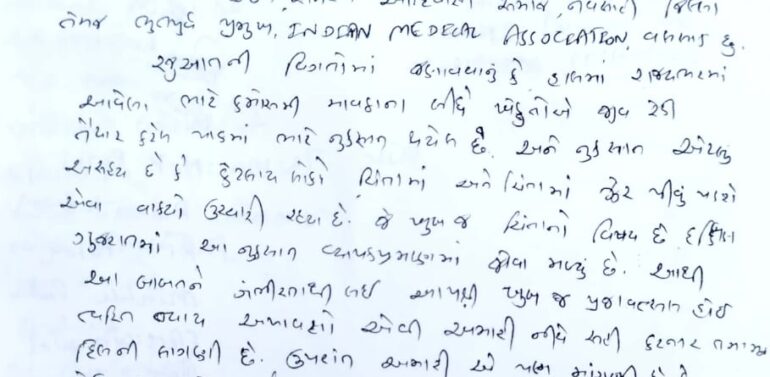 સમાજ નવસારી જિલ્લા
તેમજ ભુતપુર્વ પ્રમુખ, INDIAN MEDECAL ASSOCIATION, વલસાડ છુ.
રજુઆતની વિગતોમાં જણાવવાનુ કે હાલમાં રાજ્યભરમાં
આવેલા ભારે કમોસમી માવઠાના લીધે ખેડુતોએ જીવ રેડી
તૈયાર કરેલ પાકમાં ભારે નુકસાન થયેલ છે. અને નુકસાન એટલુ
અસહ્ય છે કે કેટલાય લોકો ચિંતામાં અને ચિંતામાં ઝેર પીવું પડશે
એવા વાક્યો ઉચ્ચારી રહ્યા છે. જે ખુબ જ ચિંતાનો વિષય છે. દક્ષિણ
ગુજરાતમાં આ નુકસાન વ્યાપકપ્રમાણમાં જોવા મળ્યું છે. આથી
આ બાબતને ગંભીરતાથી લઈ આપશ્રી ખુબ જ પ્રજાવત્સલ હોઈ
ત્વરિત ન્યાય અપાવશો એવી અમારી નીચે સહી કરનાર તમામ
દિલની લાગણી છે. ઉપરાંત અમારી એ પણ માંગણી છે કે